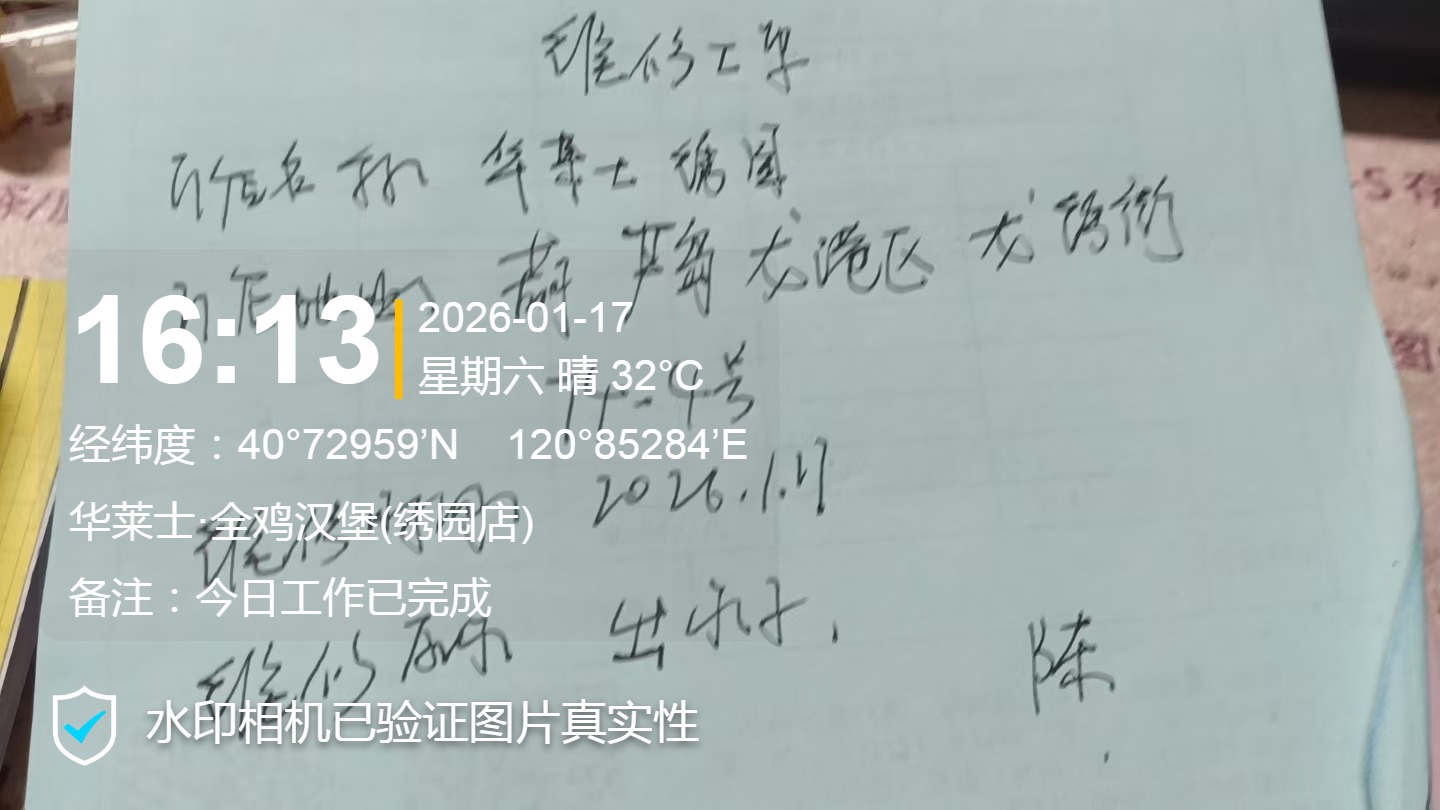 维修工单
门店名称 华莱士绣园
门店地址 葫芦岛龙港区龙绣街
-4号
维修时间 2026.1.17
维修原因 出水子.
陈
16:13
2026-01-17
星期六 晴 32°C
经纬度：40°72959’N 120°85284’E
华莱士·全鸡汉堡(绣园店)
备注：今日工作已完成
水印相机已验证图片真实性